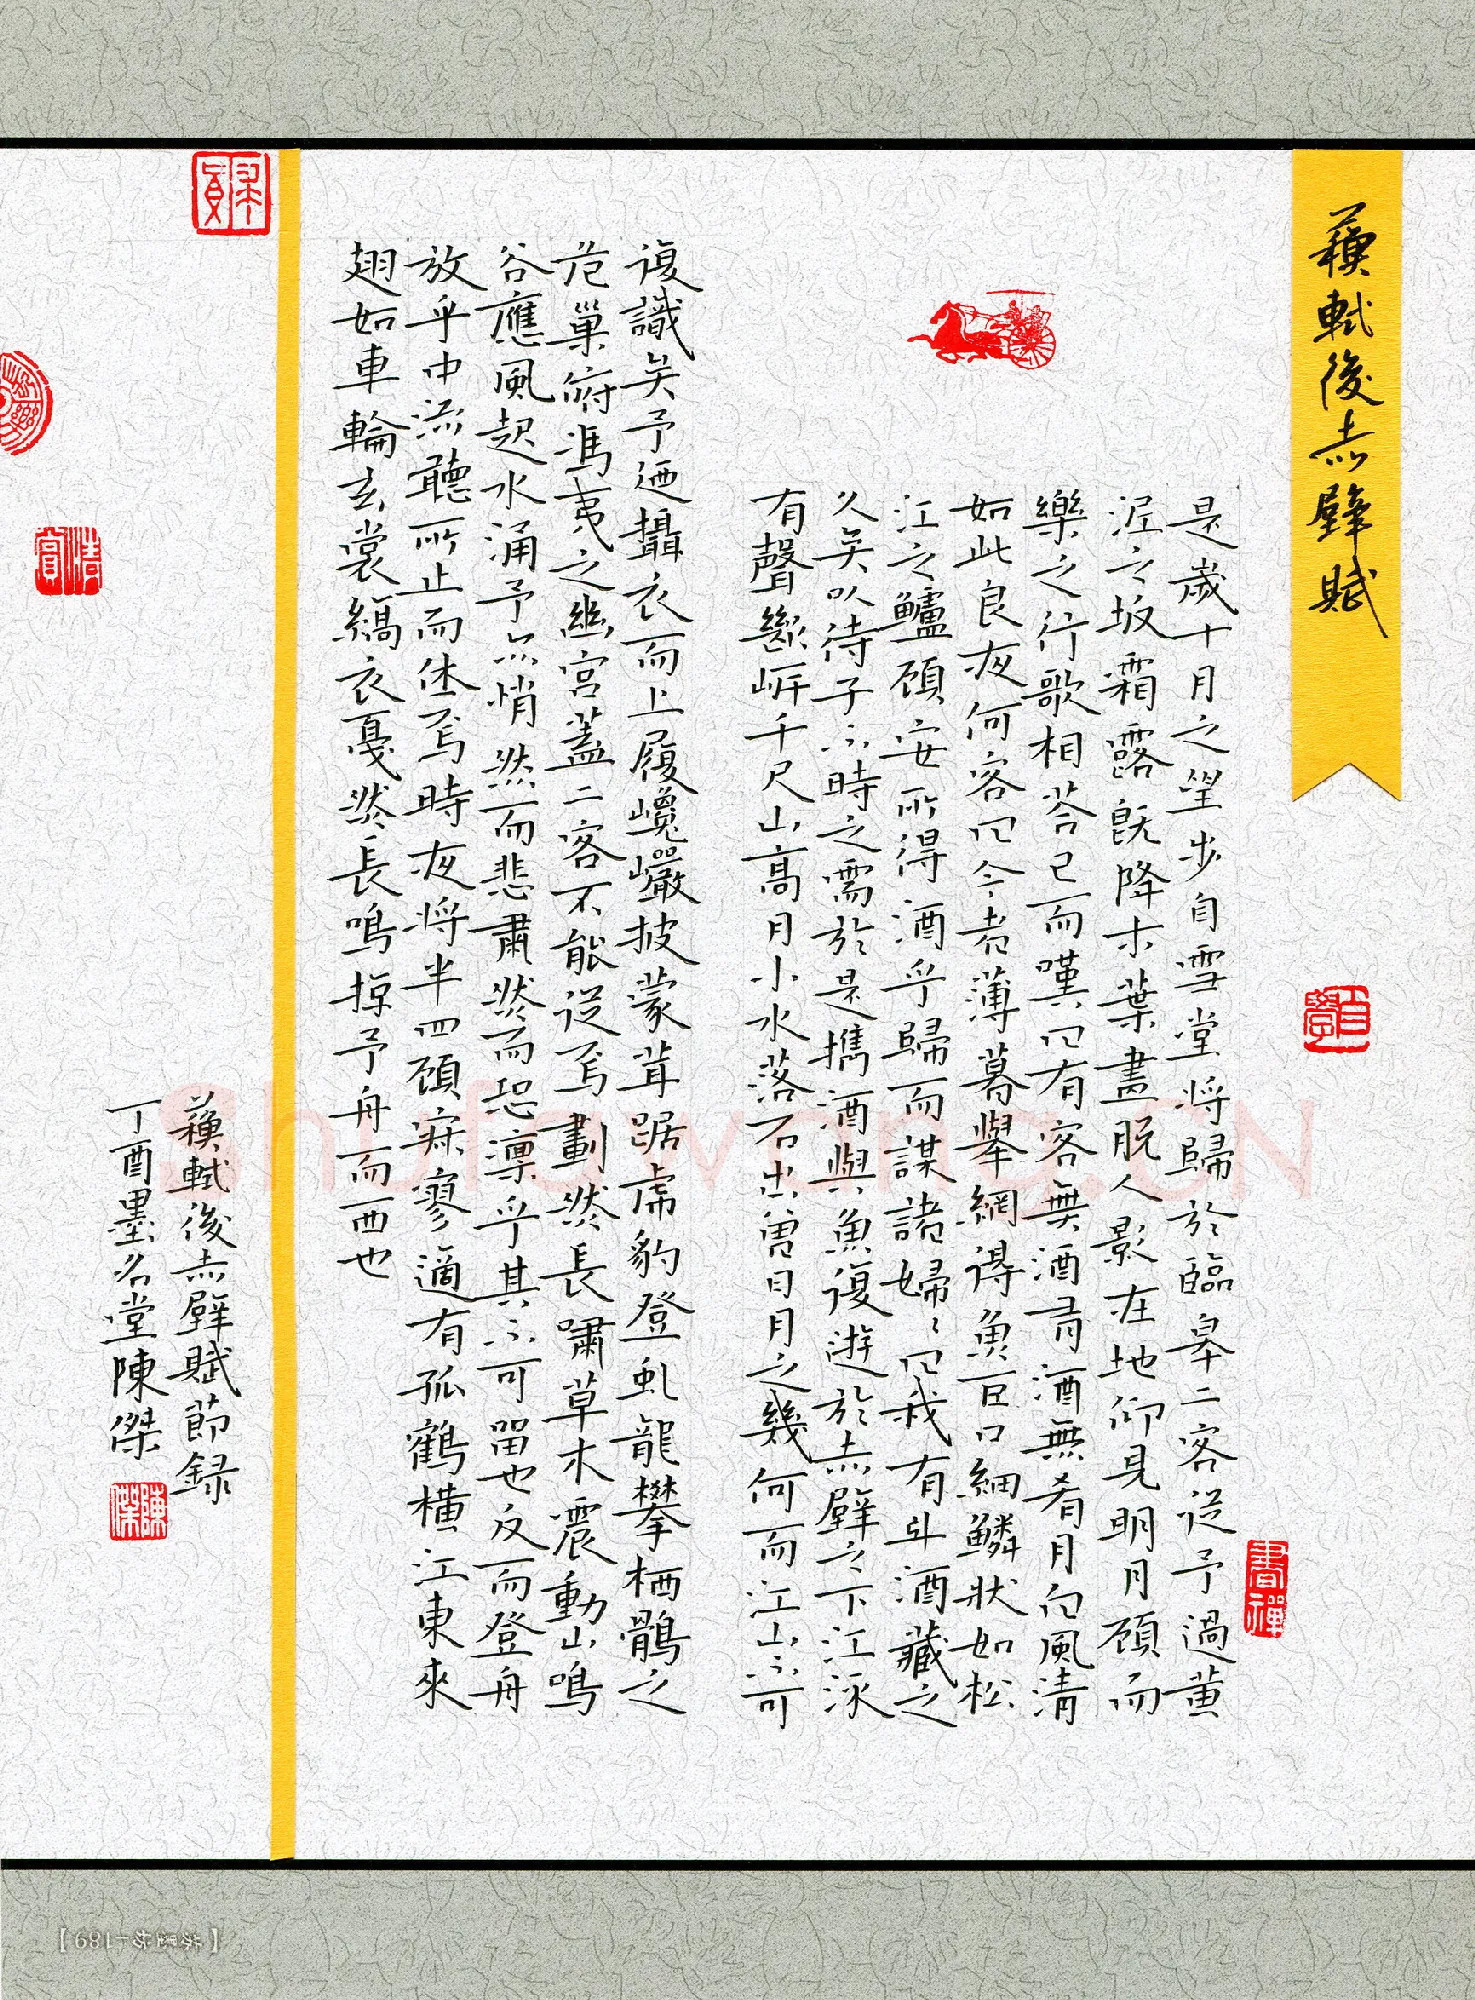 蘓軾後赤壁賦
是歲十月之望步自雪堂將歸於臨皋二客從予過黃
泥之坂霜露旣降木葉盡脫人影在地仰見明月顧而
樂之行歌相荅已而嘆曰有客無酒有酒無肴月白風清
如此良夜何客曰今者薄暮舉網得魚巨口細鱗狀如松
江之鱸顧安所得酒乎歸而謀諸婦〻曰我有斗酒藏之
久矣以待子不時之需於是攜酒與魚復遊於赤壁之下江流
有聲斷岍千尺山高月小水落石出曾日月之幾何而江山不可
復識矣予迺攝衣而上履巉巖披蒙茸踞虎豹登虬龍攀栖鶻之
危巢俯馮夷之幽宮蓋二客不能從焉劃然長嘯草木震動山鳴
谷應風起水涌予亦悄然而悲肅然而恐凛乎其不可畱也反而登舟
放乎中流聽所止而休焉時夜將半四顧寂寥適有孤鶴橫江東來
翅如車輪玄裳縞衣戛然長鳴掠予舟而西也
蘓軾後赤壁賦節錄
丁酉墨名堂陳傑
陳傑
清賞
書禪
Shufawang.CN